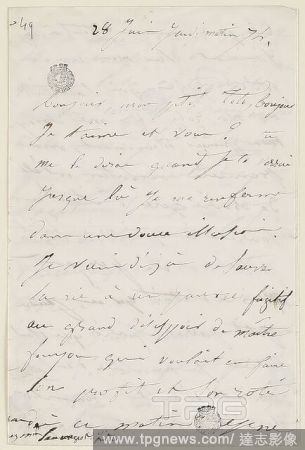 249
28 Juin Jeudi matin 
Bonjour, mon petit Toto, bonjour
Je t'aime et vous? tu
me le diras quand je te verrai
jusque là je me renferme
dans une douce illusion.
Je viens déjà de sauver
la vie à un pauvre fugitif
au grand désespoir de maître
qui voulait en faire
son profit et son rôti
ce matin
TPG NEWS
www.tpgnews.com / 達志影像